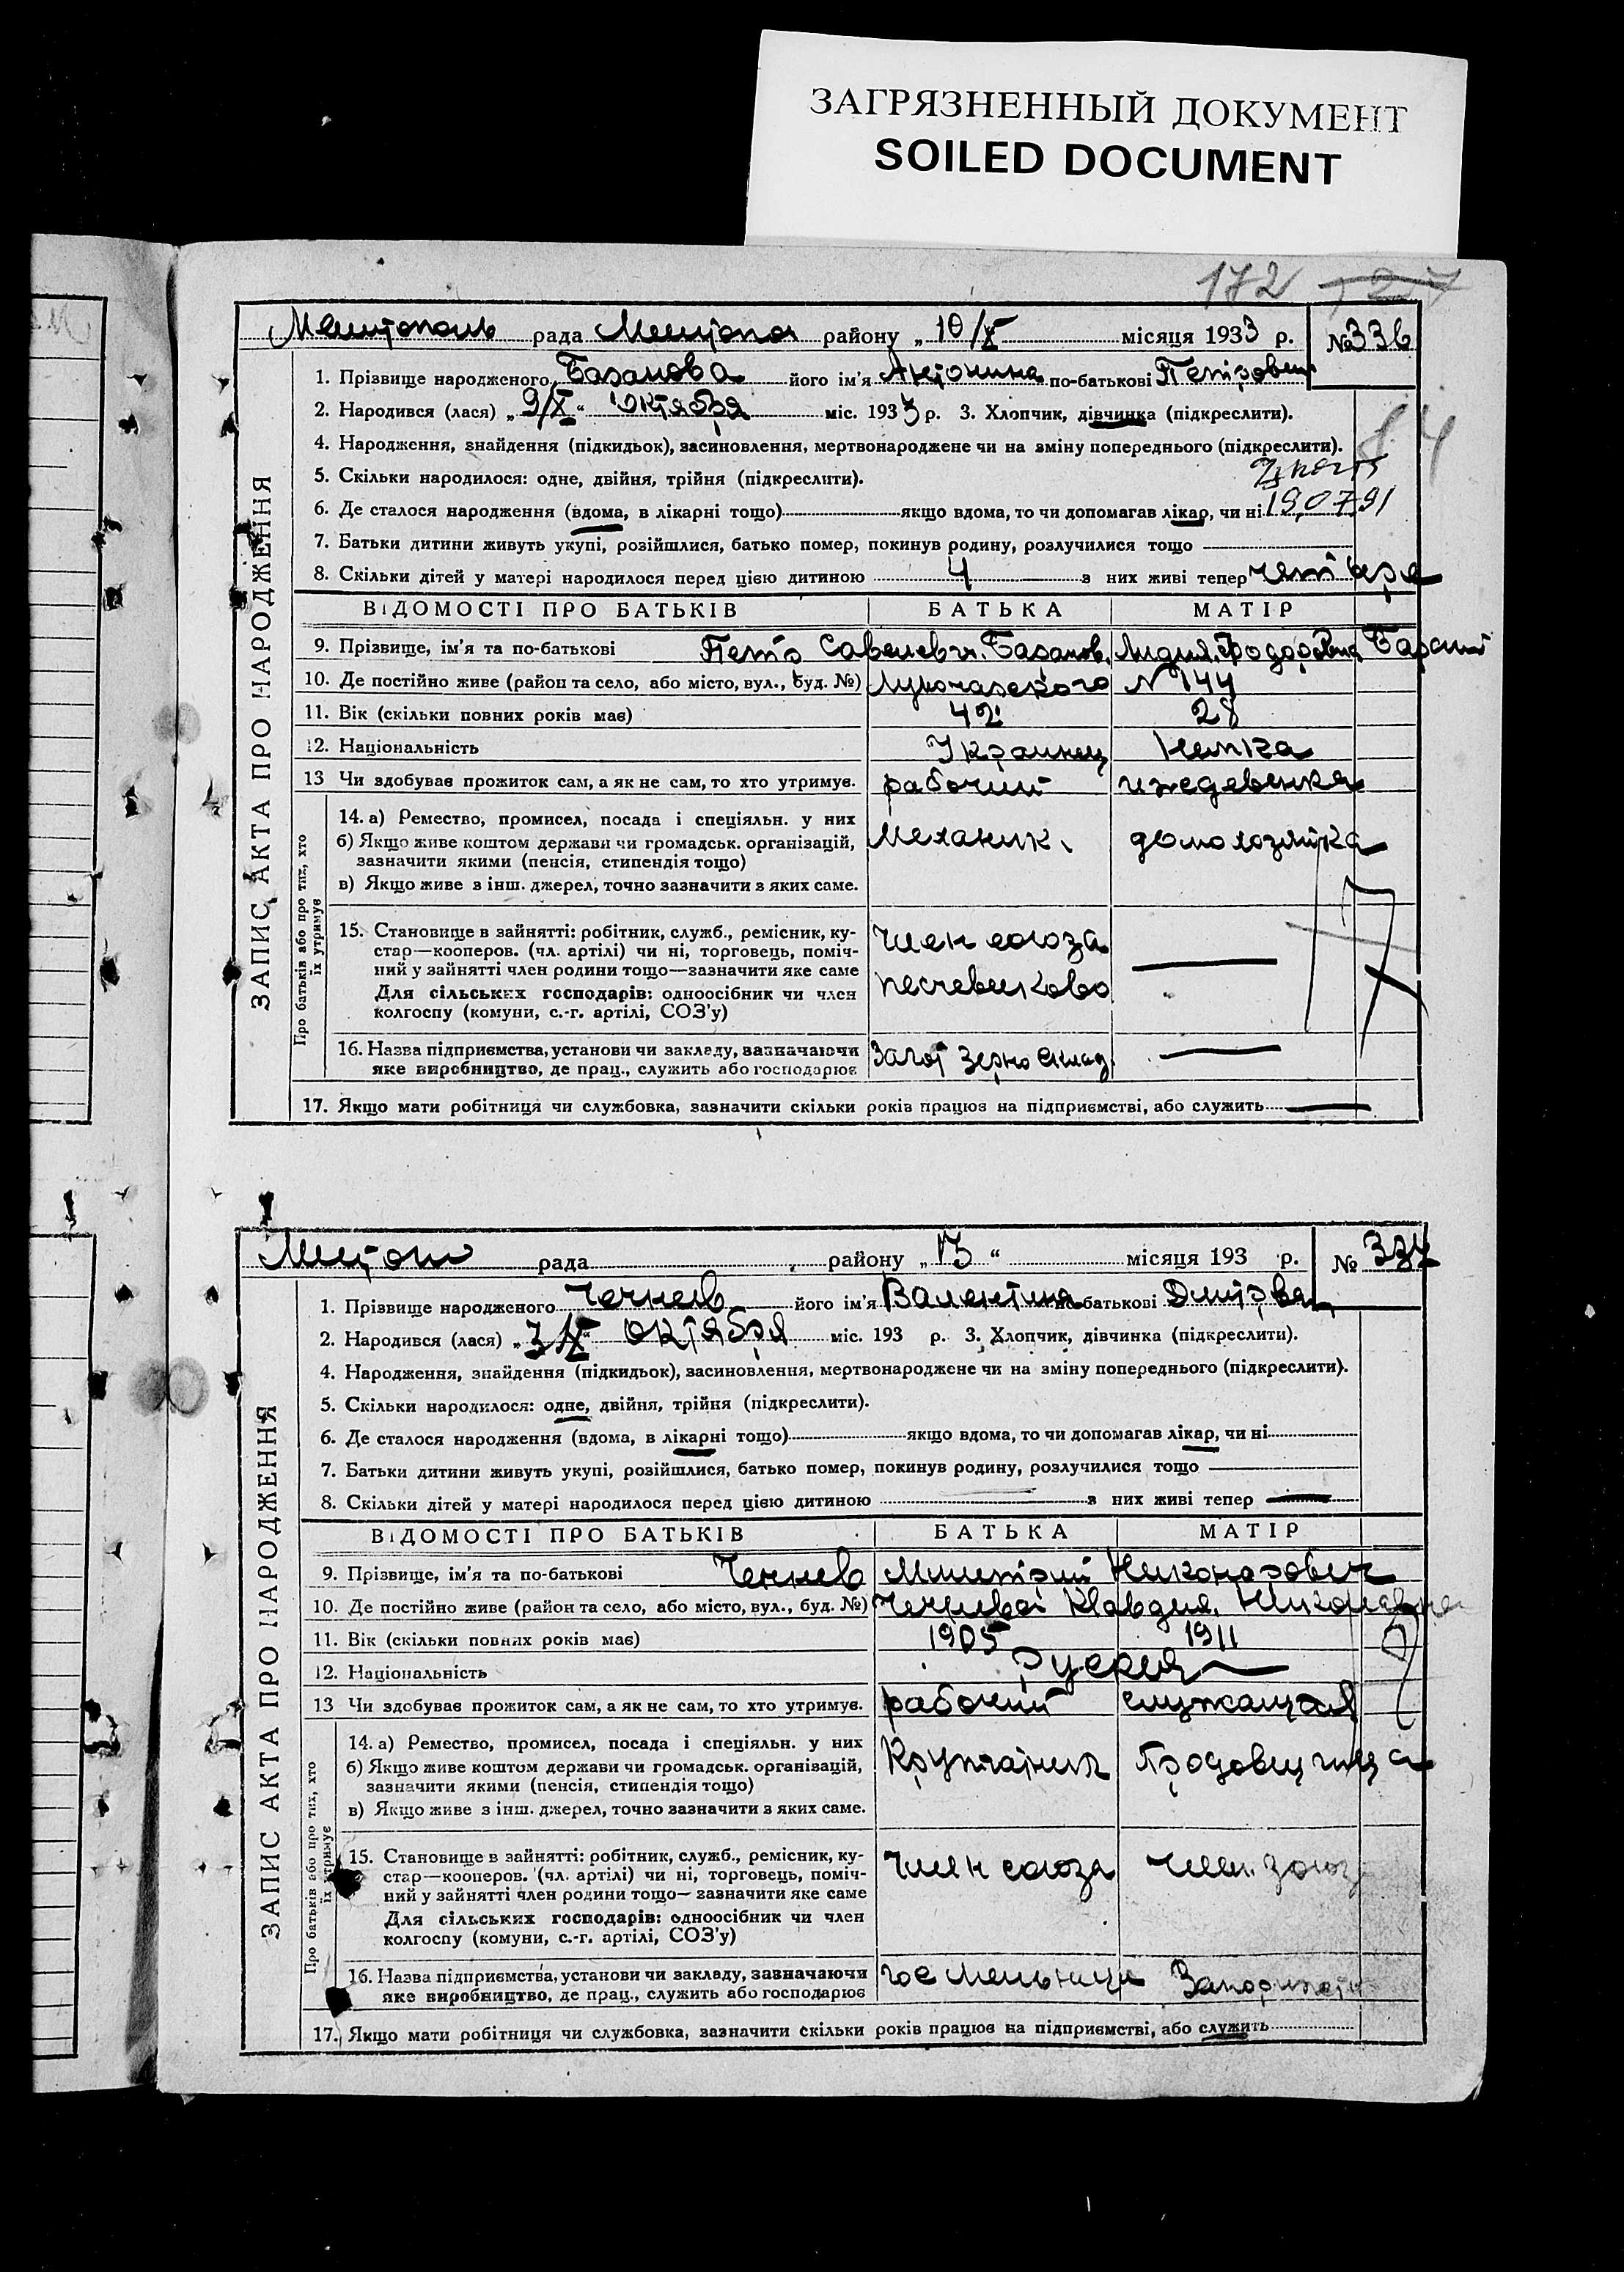 ЗАГРЯЗНЕННЫЙ ДОКУМЕНТ
SOILED DOCUMENT
172
рада району „ 10/X місяця 1933 р. № 336
ЗАПИС АКТА ПРО НАРОДЖЕННЯ
1. Прізвище народженого Базанова його ім'я Антонина по-батькові
2. Народився (лася) „ 9/X “ Октября міс. 1933 р. 3. Хлопчик, дівчинка (підкреслити).
4. Народження, знайдення (підкидьок), засиновлення, мертвонароджене чи на зміну попереднього (підкреслити).
5. Скільки народилося: одне, двійня, трійня (підкреслити).
6. Де сталося народження (вдома, в лікарні тощо) якщо вдома, то чи допомагав лікар, чи ні 19.07.91
7. Батьки дитини живуть укупі, розійшлися, батько помер, покинув родину, розлучилися тощо
8. Скільки дітей у матері народилося перед цією дитиною 4 з них живі тепер
ВІДОМОСТІ ПРО БАТЬКІВ БАТЬКА МАТІР
9. Прізвище, ім'я та по-батькові Базанов. Лидия
10. Де постійно живе (район та село, або місто, вул., буд. №) Луначарского № 144
11. Вік (скільки повних років має) 42 28
12. Національність Украинец Немка
13 Чи здобував прожиток сам, а як не сам, то хто утримує. рабочий иждевенка
Про батьків або про тих, хто їх утримує
14. а) Ремество, промисел, посада і спеціяльн. у них
б) Якщо живе коштом держави чи громадськ. організацій, Механик домохозяйка
зазначити якими (пенсія, стипендія тощо)
в) Якщо живе з інш. джерел, точно зазначити з яких саме.
15. Становище в зайнятті: робітник, служб., ремісник, ку-
стар—кооперов. (чл. артілі) чи ні, торговець, поміч- член союза
ний у зайнятті член родини тощо—зазначити яке саме
Для сільських господарів: одноосібник чи член
колгоспу (комуни, с.-г. артілі, СОЗ'у)
16. Назва підприємства, установи чи закладу, зазначаючи
яке виробництво, де прац., служить або господарює
17. Якщо мати робітниця чи службовка, зазначити скільки років працює на підприємстві, або служить
рада району „ 13 “ місяця 193 р. № 337
ЗАПИС АКТА ПРО НАРОДЖЕННЯ
1. Прізвище народженого його ім'я Валентина по-батькові
2. Народився (лася) „ 3/X “ октября міс. 193 р. 3. Хлопчик, дівчинка (підкреслити).
4. Народження, знайдення (підкидьок), засиновлення, мертвонароджене чи на зміну попереднього (підкреслити).
5. Скільки народилося: одне, двійня, трійня (підкреслити).
6. Де сталося народження (вдома, в лікарні тощо) якщо вдома, то чи допомагав лікар, чи ні
7. Батьки дитини живуть укупі, розійшлися, батько помер, покинув родину, розлучилися тощо
8. Скільки дітей у матері народилося перед цією дитиною з них живі тепер
ВІДОМОСТІ ПРО БАТЬКІВ БАТЬКА МАТІР
9. Прізвище, ім'я та по-батькові Никонорович
10. Де постійно живе (район та село, або місто, вул., буд. №) Клавдия
11. Вік (скільки повних років має) 1905 1911
12. Національність
13 Чи здобував прожиток сам, а як не сам, то хто утримує. рабочий служащая
Про батьків або про тих, хто їх утримує
14. а) Ремество, промисел, посада і спеціяльн. у них
б) Якщо живе коштом держави чи громадськ. організацій,
зазначити якими (пенсія, стипендія тощо)
в) Якщо живе з інш. джерел, точно зазначити з яких саме.
15. Становище в зайнятті: робітник, служб., ремісник, ку-
стар—кооперов. (чл. артілі) чи ні, торговець, поміч- член союза
ний у зайнятті член родини тощо—зазначити яке саме
Для сільських господарів: одноосібник чи член
колгоспу (комуни, с.-г. артілі, СОЗ'у)
16. Назва підприємства, установи чи закладу, зазначаючи
яке виробництво, де прац., служить або господарює
17. Якщо мати робітниця чи службовка, зазначити скільки років працює на підприємстві, або служить